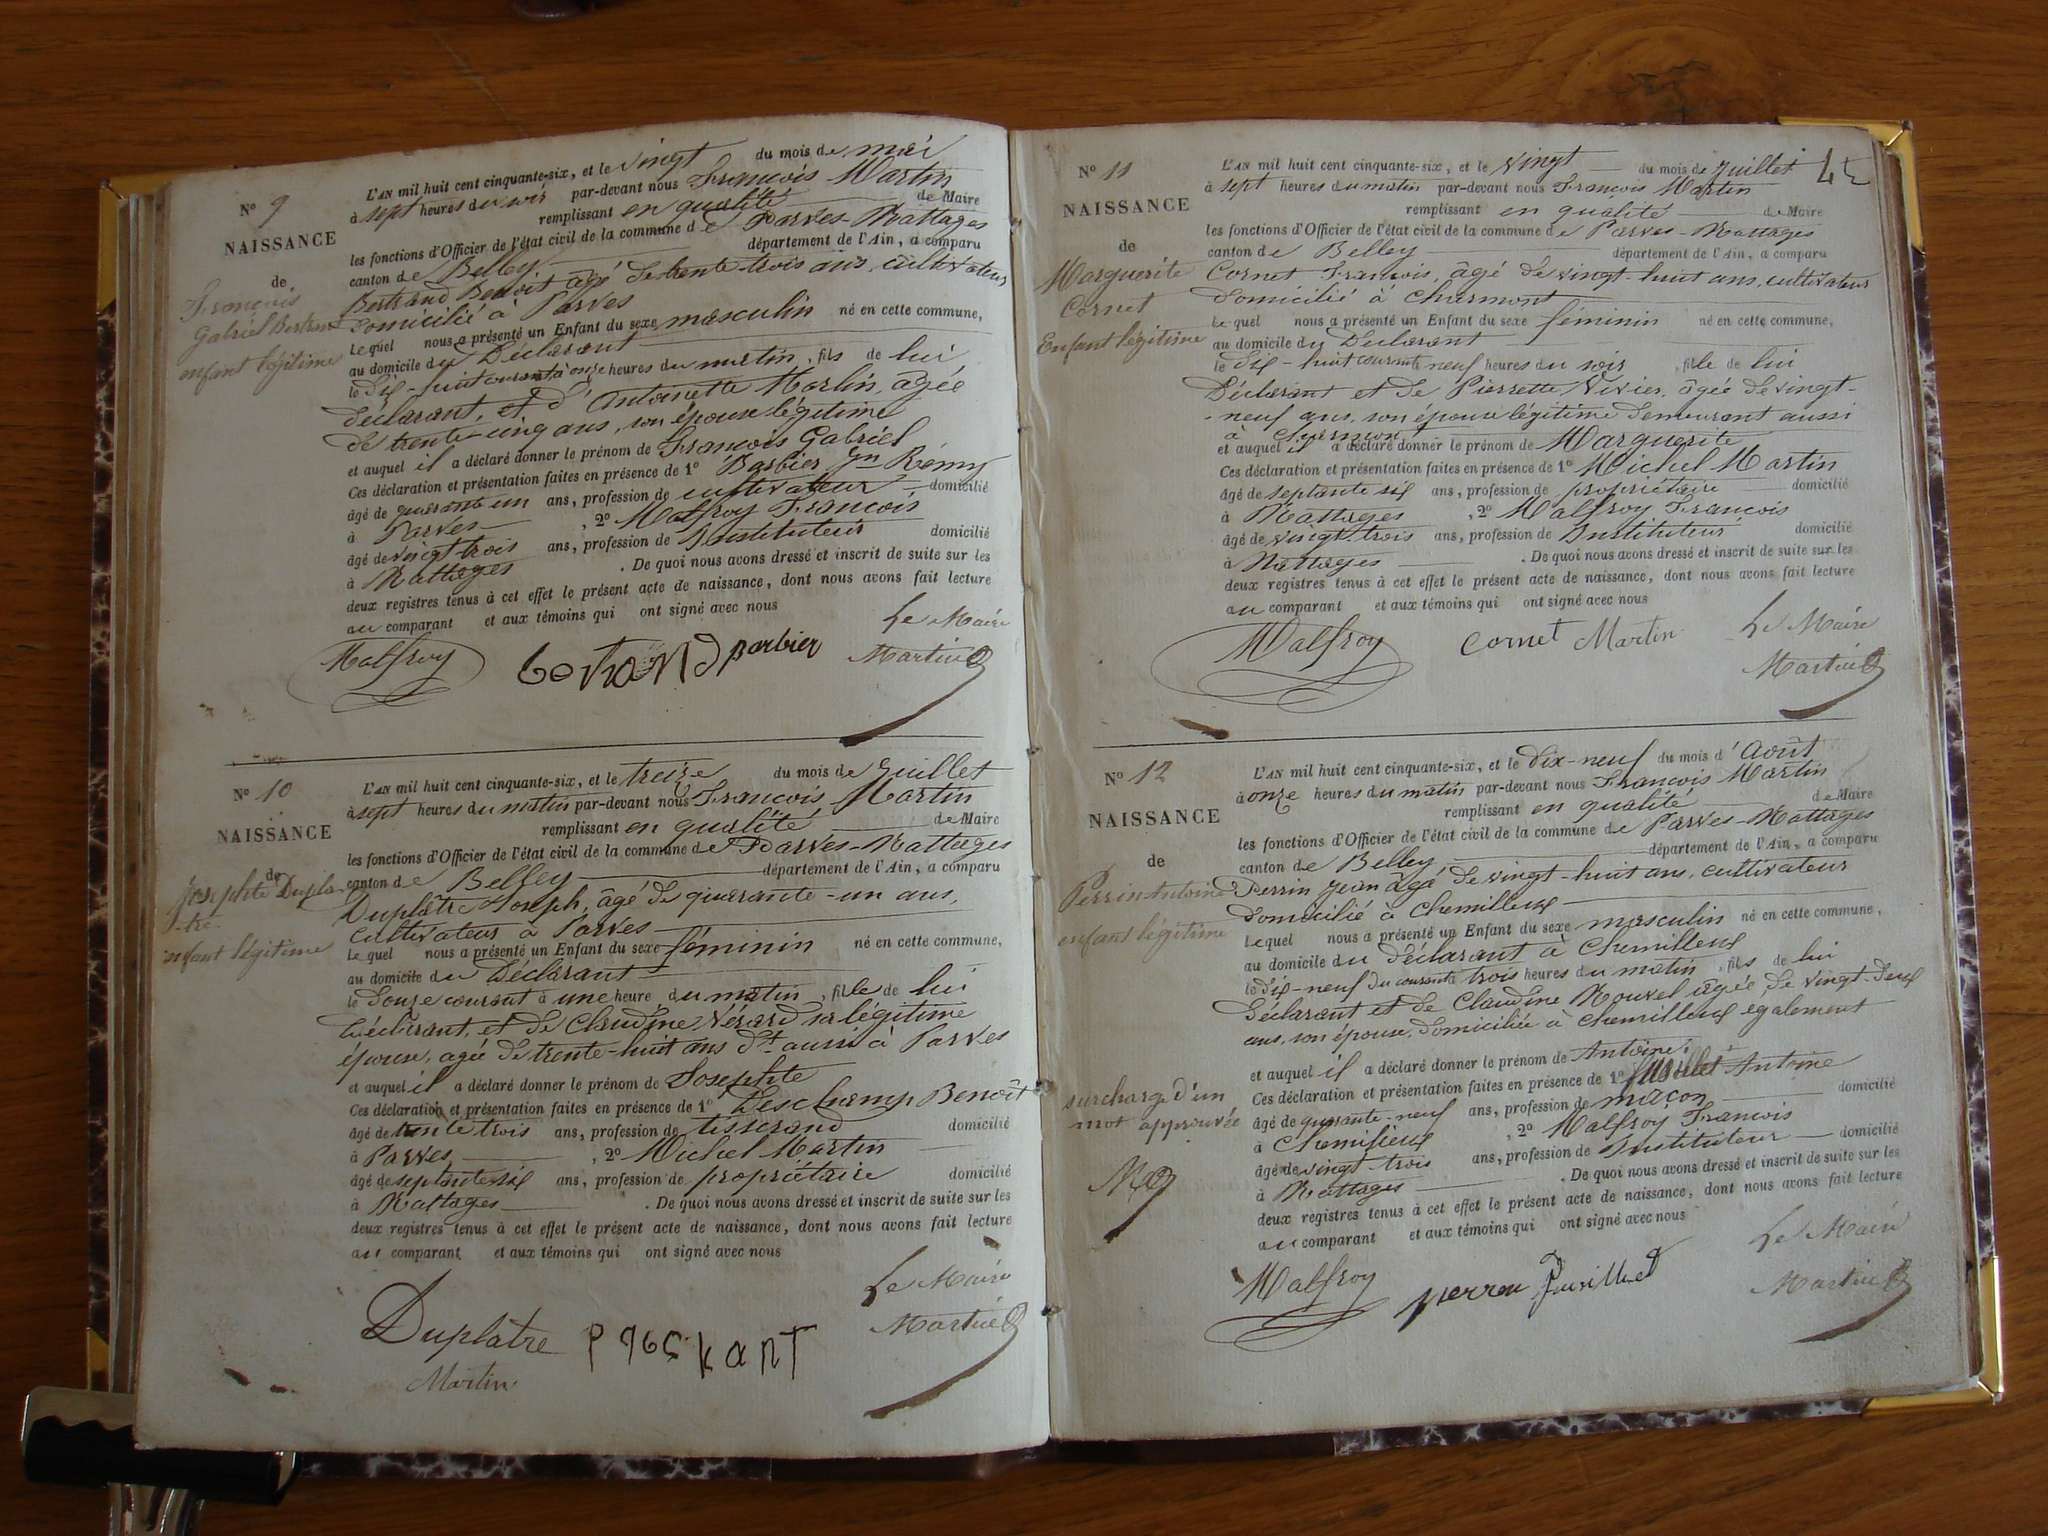 N° 9
NAISSANCE
de
François
Gabriel Bertrand
enfant légitime
L'AN mil huit cent cinquante-six, et le vingt du mois de mai
à sept heures du soir par-devant nous François Martin
remplissant en qualité de Maire
les fonctions d'Officier de l'état civil de la commune de Parves-Nattages
canton de Belley département de l'Ain, a comparu
Bertrand Benoit âgé de trente-trois ans, cultivateur
domicilié à Parves
Lequel nous a présenté un Enfant du sexe masculin né en cette commune,
au domicile du Déclarant
le dix-huit courant à onze heures du matin, fils de lui
déclarant, et d'Antoinette Martin, âgée
de trente-cinq ans, son épouse légitime
et auquel il a déclaré donner le prénom de François Gabriel
Ces déclaration et présentation faites en présence de 1° Barbier Rémy
âgé de quarante un ans, profession de cultivateur domicilié
à Parves , 2° Malfroy François
âgé de vingt-trois ans, profession de Instituteur domicilié
à Nattages . De quoi nous avons dressé et inscrit de suite sur les
deux registres tenus à cet effet le présent acte de naissance, dont nous avons fait lecture
au comparant et aux témoins qui ont signé avec nous
Le Maire
Malfroy bertrand barbier Martin
N° 10
NAISSANCE
de
Josephte Dupla-
-tre
enfant légitime
L'AN mil huit cent cinquante-six, et le treize du mois de Juillet
à sept heures du matin par-devant nous François Martin
remplissant en qualité de Maire
les fonctions d'Officier de l'état civil de la commune de Parves-Nattages
canton de Belley département de l'Ain, a comparu
Duplâtre Joseph, âgé de quarante-un ans,
cultivateur à Parves
Lequel nous a présenté un Enfant du sexe féminin né en cette commune,
au domicile du Déclarant
le douze courant à une heure du matin, fille de lui
déclarant, et de Claudine Vérard sa légitime
épouse, agée de trente-huit ans dt. aussi à Parves
et auquel il a déclaré donner le prénom de Josephte
Ces déclaration et présentation faites en présence de 1° Deschamp Benoît
âgé de trente trois ans, profession de tisserand domicilié
à Parves , 2° Michel Martin
âgé de septante six ans, profession de propriétaire domicilié
à Nattages . De quoi nous avons dressé et inscrit de suite sur les
deux registres tenus à cet effet le présent acte de naissance, dont nous avons fait lecture
au comparant et aux témoins qui ont signé avec nous
Le Maire
Duplâtre Martin
Martin
45
N° 11
NAISSANCE
de
Marguerite
Cornet
Enfant légitime
L'AN mil huit cent cinquante-six, et le vingt du mois de Juillet
à sept heures du matin par-devant nous François Martin
remplissant en qualité de Maire
les fonctions d'Officier de l'état civil de la commune de Parves-Nattages
canton de Belley département de l'Ain, a comparu
Cornet François, âgé de vingt-huit ans, cultivateur
domicilié à Charmont
Lequel nous a présenté un Enfant du sexe féminin né en cette commune,
au domicile du Déclarant
le dix-huit courant à neuf heures du soir, fille de lui
Déclarant et de Pierrette Vivier, âgée de vingt-
-neuf ans, son épouse légitime demeurant aussi
à Charmont
et auquel il a déclaré donner le prénom de Marguerite
Ces déclaration et présentation faites en présence de 1° Michel Martin
âgé de septante six ans, profession de propriétaire domicilié
à Nattages , 2° Malfroy François
âgé de vingt-trois ans, profession de Instituteur domicilié
à Nattages . De quoi nous avons dressé et inscrit de suite sur les
deux registres tenus à cet effet le présent acte de naissance, dont nous avons fait lecture
au comparant et aux témoins qui ont signé avec nous
Le Maire
Malfroy cornet Martin Martin
N° 12
NAISSANCE
de
Perrin Antoine
enfant légitime
L'AN mil huit cent cinquante-six, et le dix-neuf du mois d'Août
à onze heures du matin par-devant nous François Martin
remplissant en qualité de Maire
les fonctions d'Officier de l'état civil de la commune de Parves-Nattages
canton de Belley département de l'Ain, a comparu
Perrin Jean âgé de vingt-huit ans, cultivateur
domicilié à Chemilleux
Lequel nous a présenté un Enfant du sexe masculin né en cette commune,
au domicile du déclarant à Chemilleux
le dix-neuf du courant à trois heures du matin, fils de lui
déclarant et de Claudine Rouvel âgée de vingt-deux
ans, son épouse, domiciliée à Chemilleux egalement
et auquel il a déclaré donner le prénom de Antoine
Ces déclaration et présentation faites en présence de 1° Antoine
âgé de quarante-neuf ans, profession de maçon domicilié
à Chemilleux , 2° Malfroy François
âgé de vingt-trois ans, profession de Instituteur domicilié
à Nattages . De quoi nous avons dressé et inscrit de suite sur les
deux registres tenus à cet effet le présent acte de naissance, dont nous avons fait lecture
au comparant et aux témoins qui ont signé avec nous
surcharge d'un
mot approuvée
Le Maire
Malfroy Martin